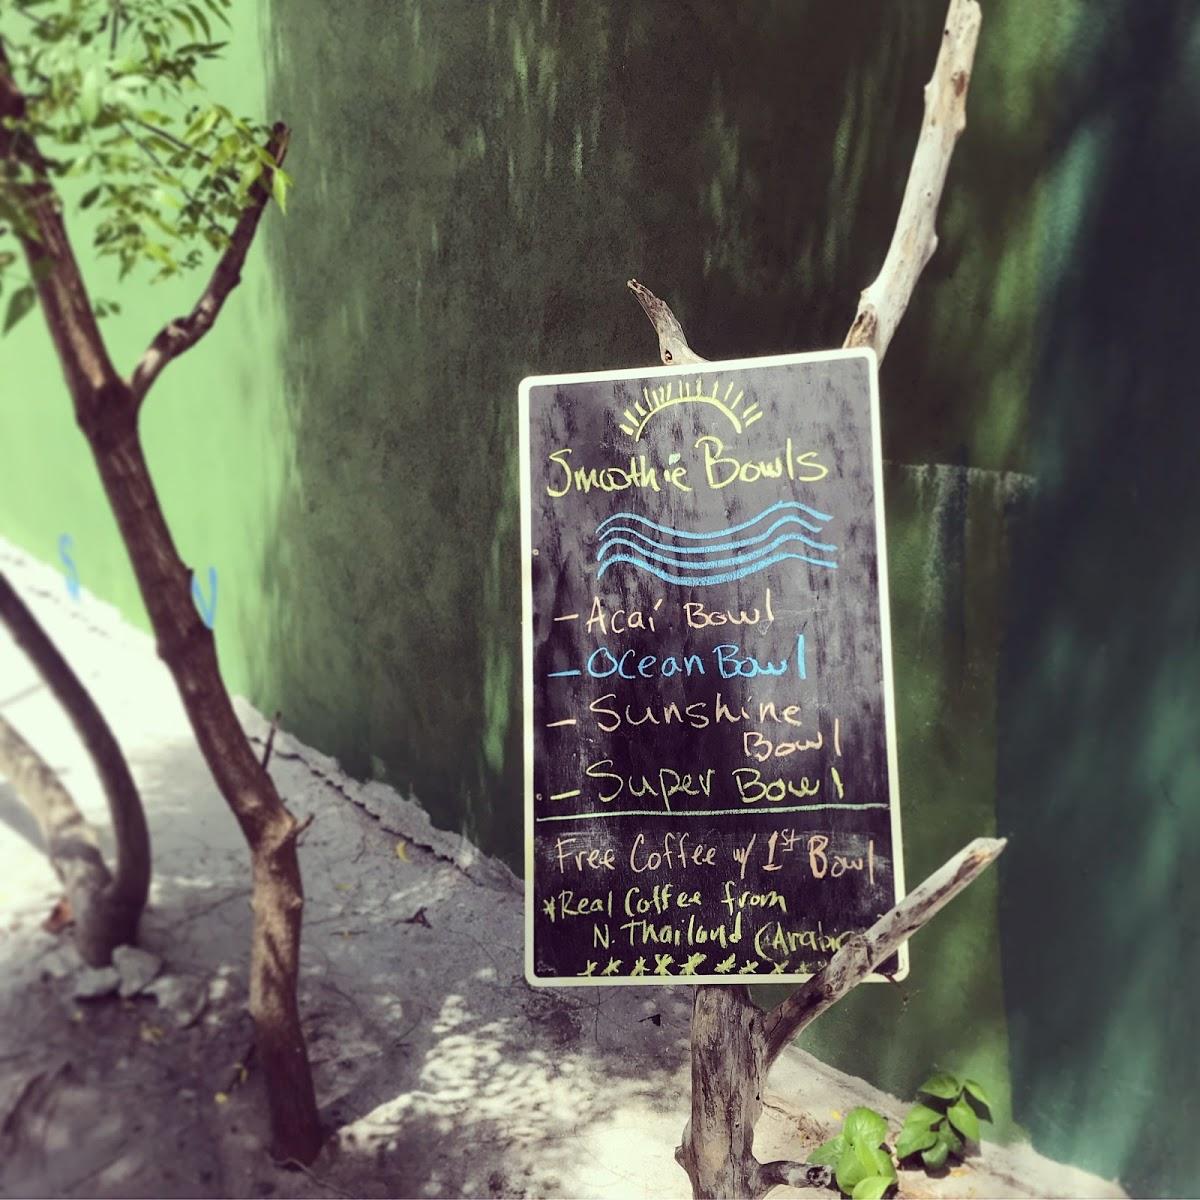 Smoothie Bowls
- Acaí Bowl
- Ocean Bowl
- Sunshine
Bowl
- Super Bowl
Free Coffee w/ 1st Bowl
*Real Coffee from
N. Thailand
S V